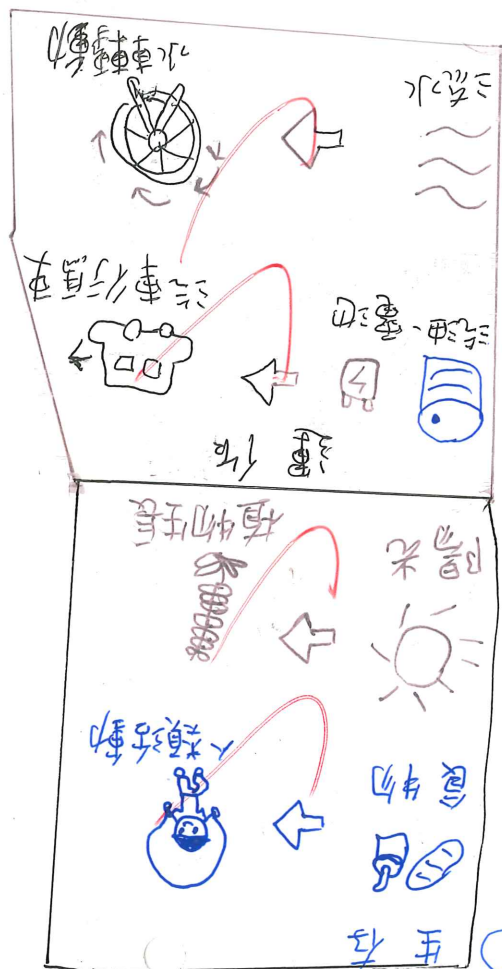 生存
食物
人類活動
陽光
植物生長
運作
汽油、電池
汽車行駛
流水
水車轉動